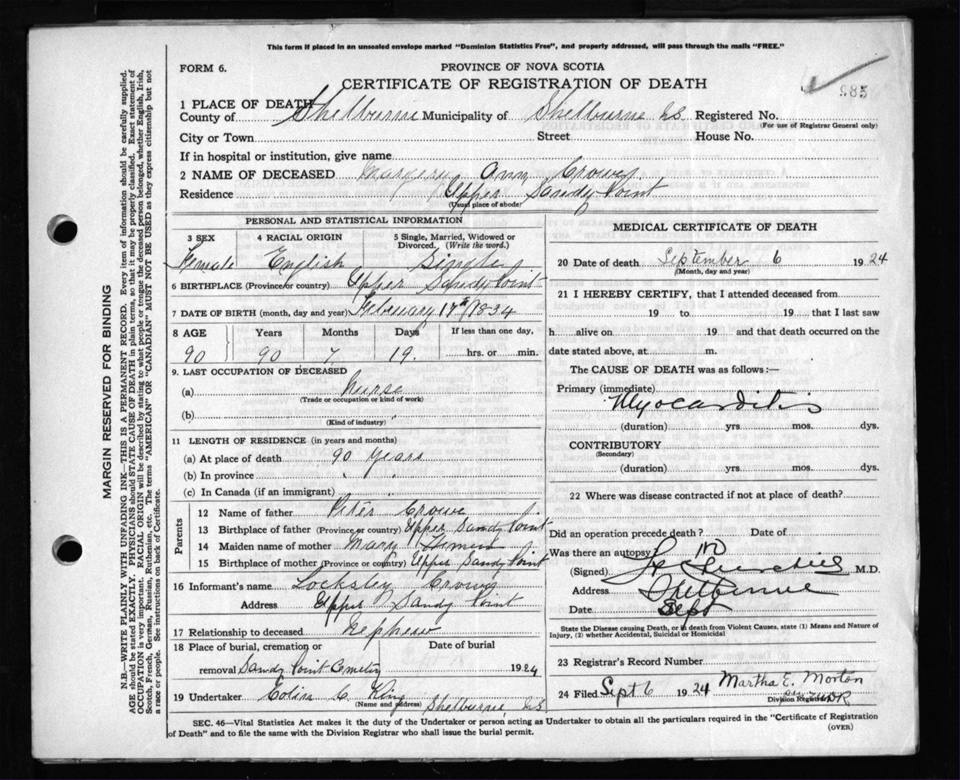 This form if placed in an unsealed envelope marked "Dominion Statistics Free", and properly addressed, will pass through the mails "FREE."
FORM 6.
PROVINCE OF NOVA SCOTIA
CERTIFICATE OF REGISTRATION OF DEATH
885
1 PLACE OF DEATH
County of Shelburne Municipality of Shelburne NS Registered No.
(For use of Registrar General only)
City or Town Street House No.
If in hospital or institution, give name
2 NAME OF DECEASED Margery Ann Crowe
Residence Upper Sandy Point
(Usual place of abode)
PERSONAL AND STATISTICAL INFORMATION
3 SEX 4 RACIAL ORIGIN 5 Single, Married, Widowed or Divorced. (Write the word.)
Female English Single
6 BIRTHPLACE (Province or country) Upper Sandy Point
7 DATE OF BIRTH (month, day and year) February 17th 1834
8 AGE Years Months Days If less than one day,
90 90 7 19. hrs. or min.
9. LAST OCCUPATION OF DECEASED
(a) Nurse
(Trade or occupation or kind of work)
(b)
(Kind of industry)
11 LENGTH OF RESIDENCE (in years and months)
(a) At place of death 90 Years
(b) In province
(c) In Canada (if an immigrant)
Parents
12 Name of father Peter Crowe
13 Birthplace of father (Province or country) Upper Sandy Point
14 Maiden name of mother Mary
15 Birthplace of mother (Province or country) Upper Sandy Point
16 Informant's name Locksley Crowe
Address Upper Sandy Point
17 Relationship to deceased Nephew
18 Place of burial, cremation or Date of burial
removal Sandy Point Cemetery 1924
19 Undertaker C. King
(Name and address) Shelburne NS
MEDICAL CERTIFICATE OF DEATH
20 Date of death September 6 1924
(Month, day and year)
21 I HEREBY CERTIFY, that I attended deceased from
19 to 19 that I last saw
h alive on 19 and that death occurred on the
date stated above, at m.
The CAUSE OF DEATH was as follows:—
Primary (immediate)
Myocarditis
(duration) yrs. mos. dys.
CONTRIBUTORY
(Secondary)
(duration) yrs. mos. dys.
22 Where was disease contracted if not at place of death?
Did an operation precede death? Date of
Was there an autopsy? no
(Signed) M.D.
Address Shelburne
Date Sept
State the Disease causing Death, or in death from Violent Causes, state (1) Means and Nature of
Injury, (2) whether Accidental, Suicidal or Homicidal
23 Registrar's Record Number
24 Filed Sept 6 1924 Martha E. Morton
Division Registrar
SEC. 46—Vital Statistics Act makes it the duty of the Undertaker or person acting as Undertaker to obtain all the particulars required in the "Certificate of Registration
of Death" and to file the same with the Division Registrar who shall issue the burial permit. (OVER)
MARGIN RESERVED FOR BINDING
N.B.—WRITE PLAINLY WITH UNFADING INK—THIS IS A PERMANENT RECORD. Every item of information should be carefully supplied.
AGE should be stated EXACTLY. PHYSICIANS should STATE CAUSE OF DEATH in plain terms, so that it may be properly classified. Exact statement of
OCCUPATION is very important. RACIAL ORIGIN will be described by stating to what people or tongue the deceased person belonged, whether English, Irish,
Scotch, French, German, Russian, Ruthenian, etc. The terms "AMERICAN" OR "CANADIAN" MUST NOT BE USED as they express citizenship but not
a race or people. See instructions on back of Certificate.